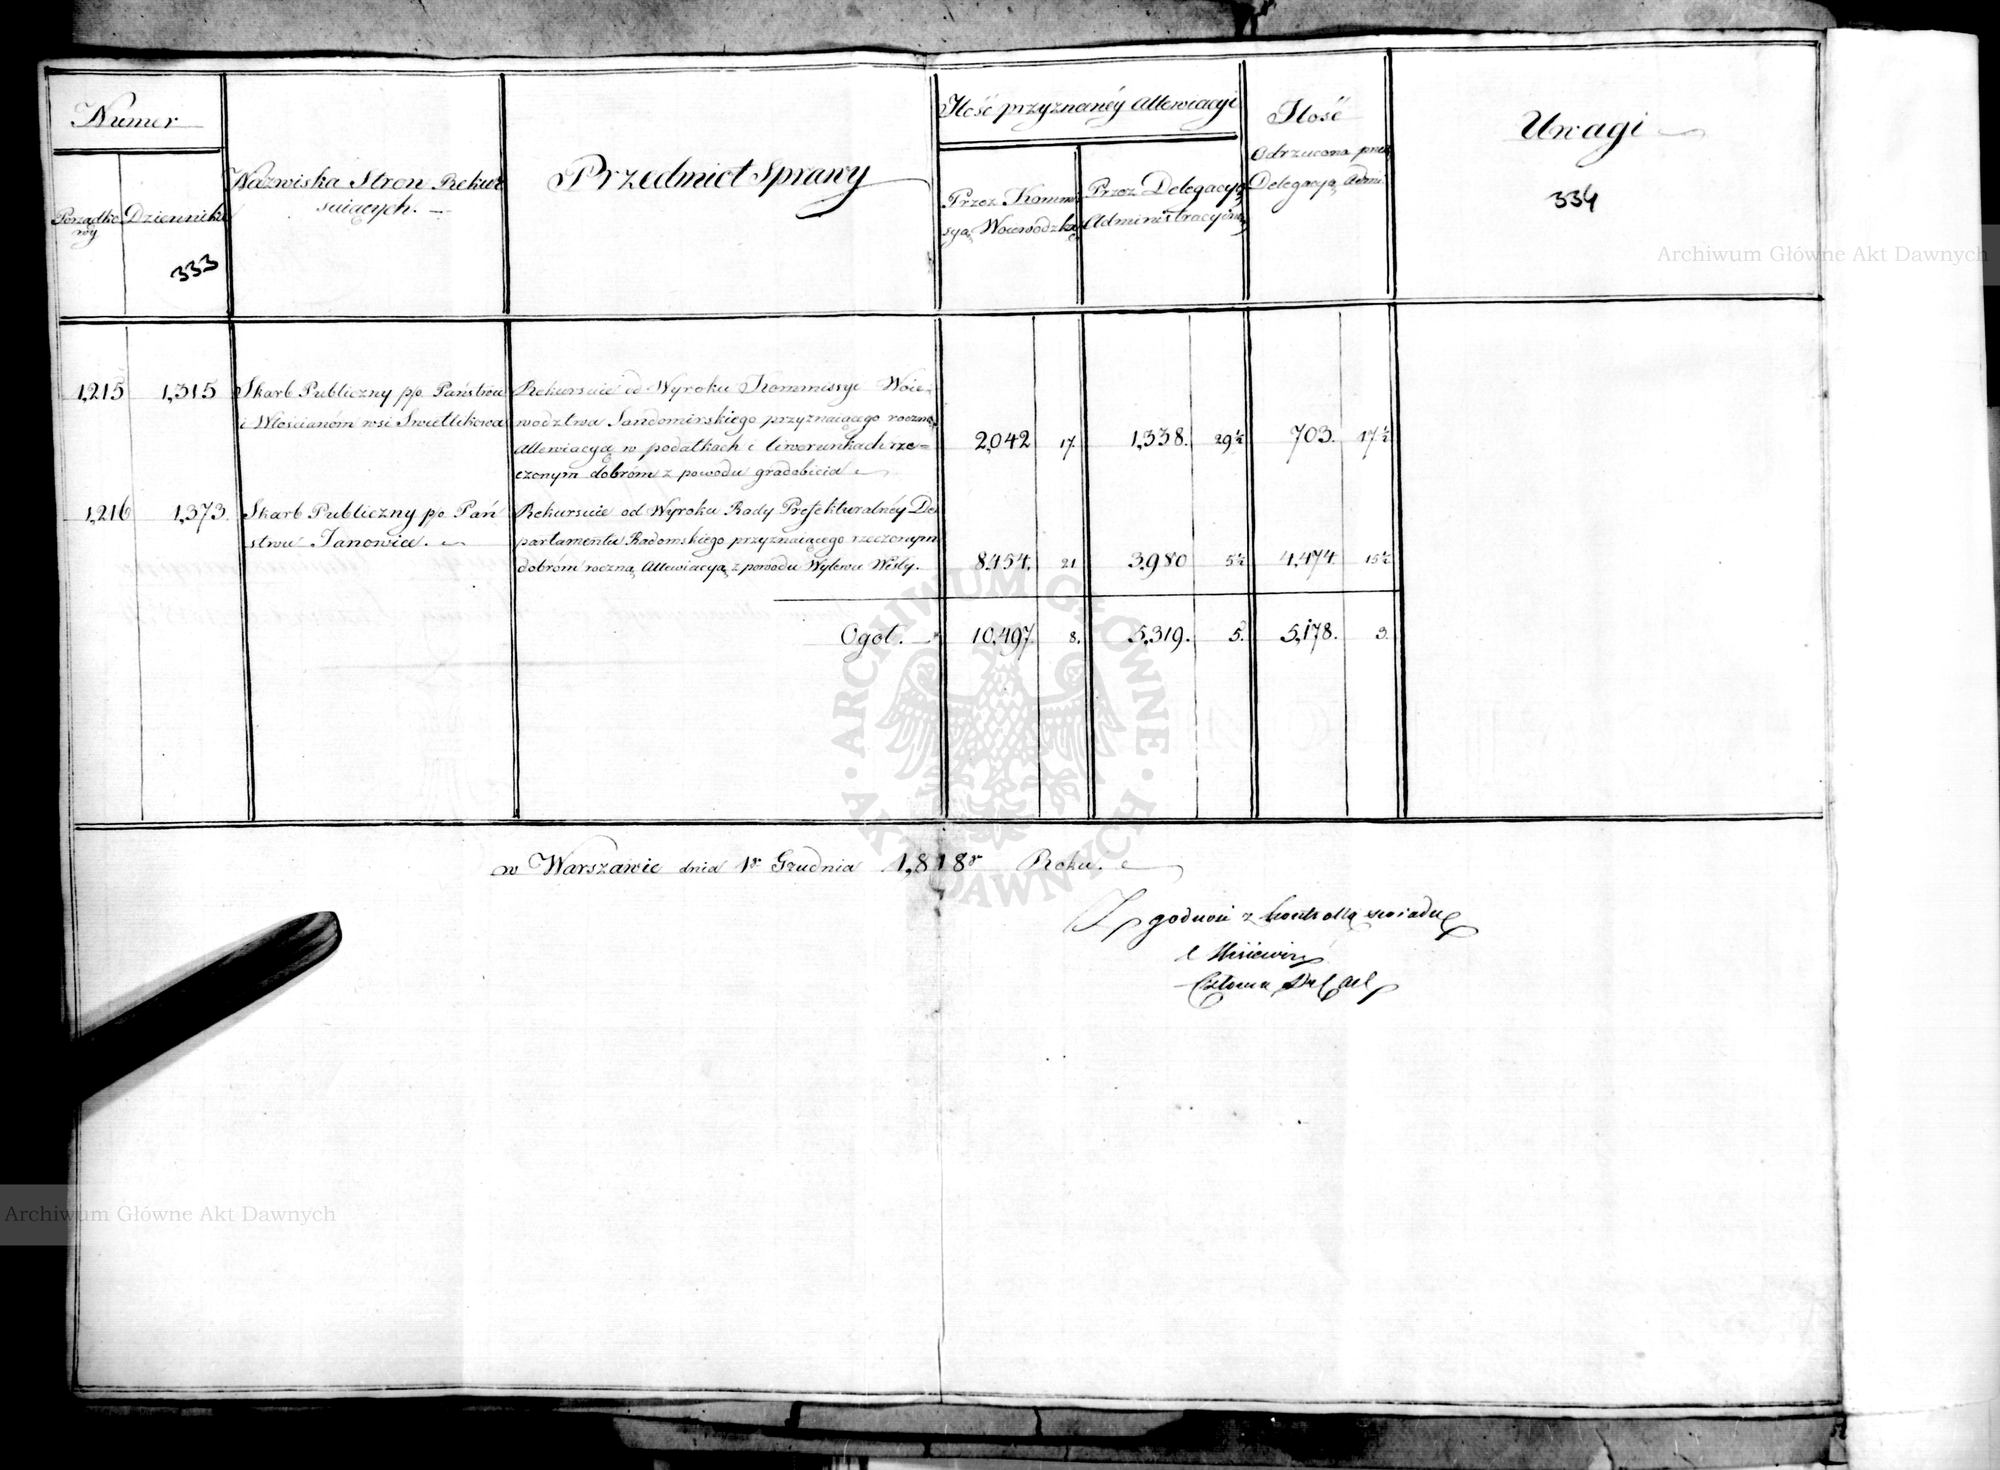 Numer
Porządko
wy
Dziennika
333
Nazwiska Stron Rekur
suiących.
Przedmiot Sprawy
Ilość przyznanéy Allewiacyi
Przez Kommis
syą Woiewodzką
Przez Delegacyą
Administracyiną
Ilość
Odrzucona przez
Delegacyą Admi:
Uwagi
334
Archiwum Główne Akt Dawnych
1,215 1,315 Skarb Publiczny p/o Państwu
i Włościanóm wsi Swietlikowa
Rekursuie od Wyroku Kommissyi Woie-
wodztwa Sandomirskiego przyznaiącego roczną
Allewiacyą w podatkach i liwerunkach rze=
czonym dobróm z powodu gradobicia
2,042 17. 1,338. 29½ 703. 17½
1,216 1,373. Skarb Publiczny p/o Pań
stwu Janowiec.
Rekursuie od Wyroku Rady Prefekturalnéy De
partamentu Radomskiego przyznaiącego rzeczonym
dobróm roczną Allewiacyą z powodu Wylewu Wisły.
8,454. 21 3,980 5½ 4,474. 15½
Ogół. 10,497. 8. 5,319. 5. 5,178. 3.
ARCHIWUM GŁÓWNE AKT DAWNYCH
w Warszawie dnia 1º Grudnia 1,818º Roku.
Zgodność z kontrollą zaświadcza
Członek Del. Ad.
Archiwum Główne Akt Dawnych